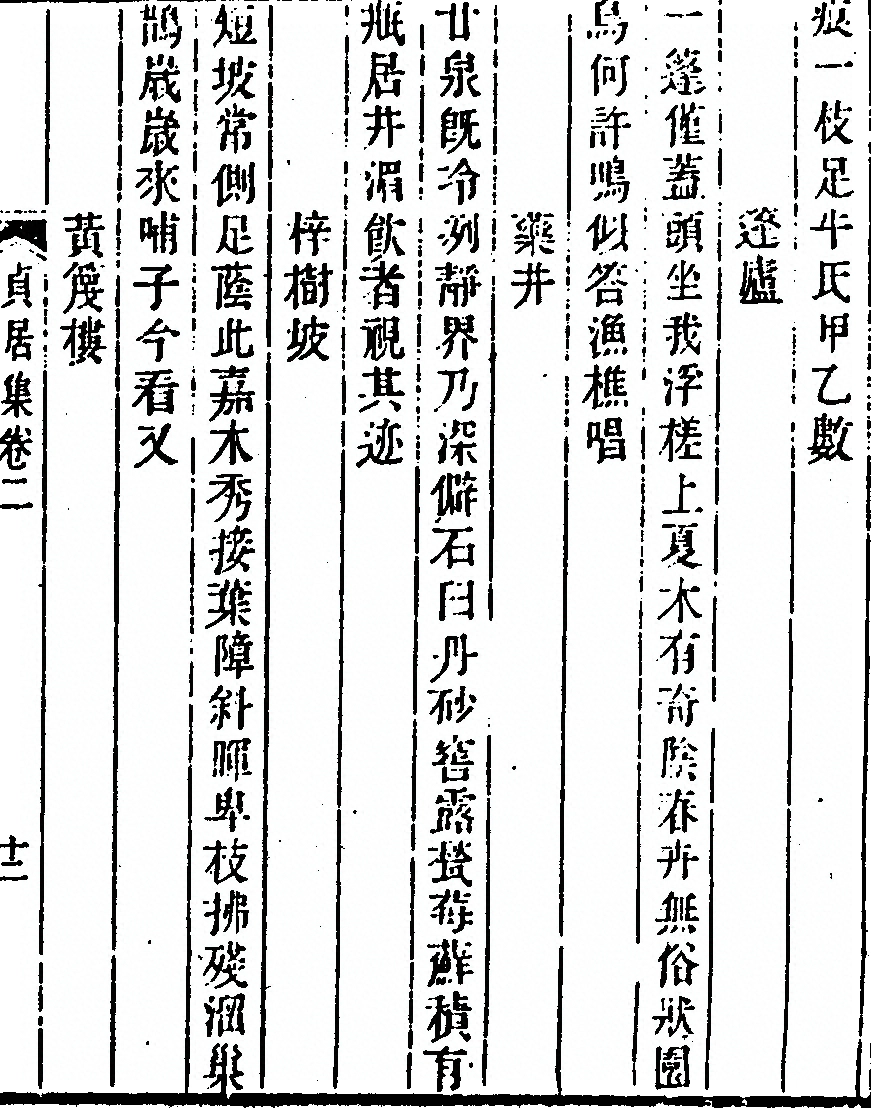 痕一枝足牛氏甲乙數
蓬廬
一蓬僅蓋頭坐我浮槎上夏木有奇陰春卉無俗狀園
鳥何許鳴似答漁樵唱
藥井
甘泉既冷冽靜界乃深僻石臼丹砂窖露甃莓蘚積有
瓶居井湄飲者視其迹
梓樹坡
短坡常側足蔭此嘉木秀接葉障斜暉卑枝拂殘溜巢
鵲歲歲來哺子今看又
黃篾樓
貞居集卷二
十二